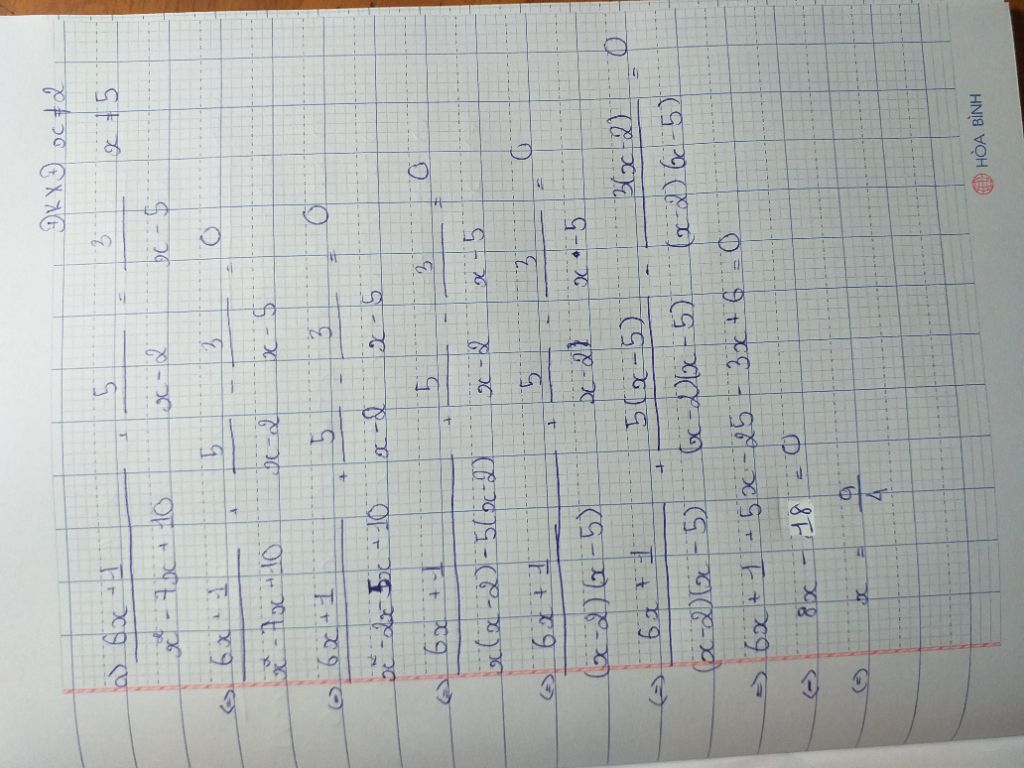 ĐKXĐ x ≠ 2
a) (6x + 1)/(x² - 7x + 10) + 5/(x - 2) = 3/(x - 5) x ≠ 5
(=) (6x + 1)/(x² - 7x + 10) + 5/(x - 2) - 3/(x - 5) = 0
(=) (6x + 1)/(x² - 2x - 5x + 10) + 5/(x - 2) - 3/(x - 5) = 0
(=) (6x + 1)/(x(x - 2) - 5(x - 2)) + 5/(x - 2) - 3/(x - 5) = 0
(=) (6x + 1)/((x - 2)(x - 5)) + 5/(x - 2) - 3/(x - 5) = 0
(=) (6x + 1)/((x - 2)(x - 5)) + 5(x - 5)/((x - 2)(x - 5)) - 3(x - 2)/((x - 2)(x - 5)) = 0
=) 6x + 1 + 5x - 25 - 3x + 6 = 0
(=) 8x - 18 = 0
(=) x = 9/4
HÒA BÌNH